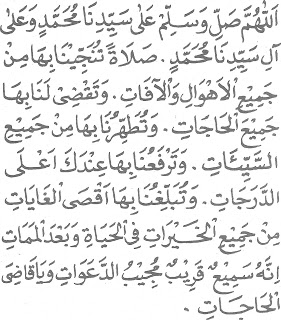 اَللّٰهُمَّ صَلِّ وَسَلِّمْ عَلٰى سَيِّدِنَا مُحَمَّدٍ وَعَلٰى
آلِ سَيِّدِنَا مُحَمَّدٍ. صَلَاةً تُنَجِّيْنَا بِهَا مِنْ
جَمِيْعِ الْاَهْوَالِ وَالْآفَاتِ. وَتَقْضِىْ لَنَا بِهَا
جَمِيْعَ الْحَاجَاتِ. وَتُطَهِّرُنَا بِهَا مِنْ جَمِيْعِ
السَّيِّئَاتِ. وَتَرْفَعُنَا بِهَا عِنْدَكَ اَعْلَى
الدَّرَجَاتِ. وَتُبَلِّغُنَا بِهَا اَقْصَى الْغَايَاتِ
مِنْ جَمِيْعِ الْخَيْرَاتِ فِى الْحَيَاةِ وَبَعْدَ الْمَمَاتِ
اِنَّهُ سَمِيْعٌ قَرِيْبٌ مُجِيْبُ الدَّعَوَاتِ وَيَا قَاضِىَ
الْحَاجَاتِ.